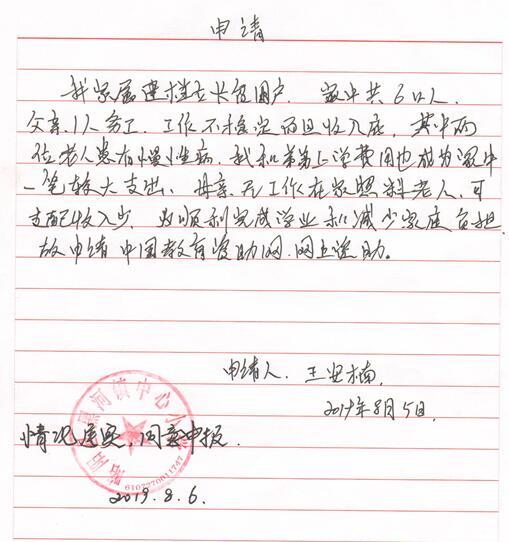 申请
我家属建档立卡贫困户，家中共6口人，
父亲1人务工，工作不稳定而且收入底，其中两
位老人患有慢性病，我和弟弟上学费用也成为家中
一笔较大支出，母亲无工作在家照料老人，可
支配收入少，为顺利完成学业和减少家庭负担
故申请中国教育资助网，网上资助。
申请人：王安楠
2019年8月5日.
情况属实，同意申报.
2019.8.6.
黑河镇中心小学
6107270011747